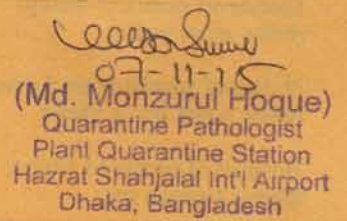 07-11-15
(Md. Monzurul Hoque)
Quarantine Pathologist
Plant Quarantine Station
Hazrat Shahjalal Int'l Airport
Dhaka, Bangladesh